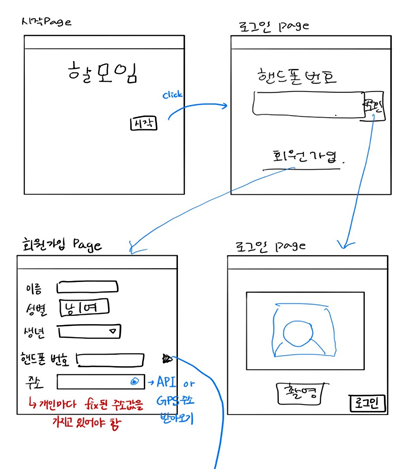 시작Page
할모임
시작
click
로그인 page
핸드폰 번호
확인
회원가입.
회원가입 Page
이름
성별 남|여
생년
핸드폰 번호
주소
→ API or
GPS 주소
받아오기
↳ 개인마다 fix된 주소값을
가지고 있어야 함
로그인 page
촬영
로그인